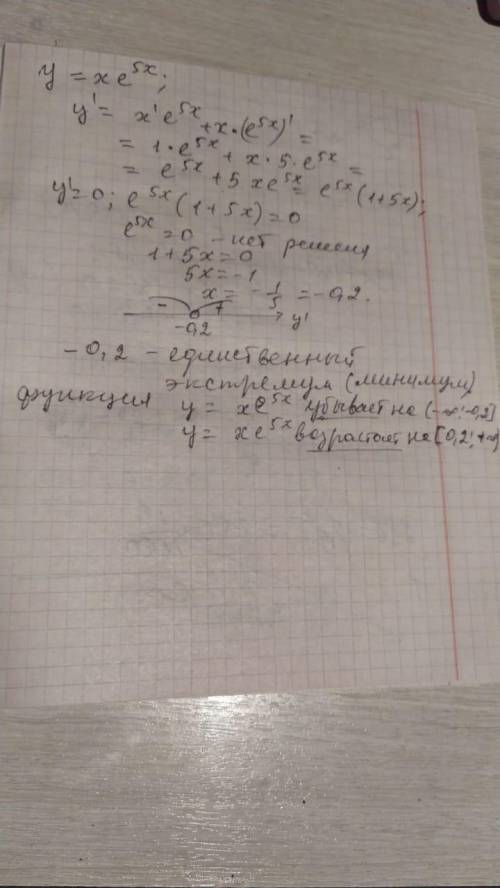 y = xe^{5x};
y' = x'e^{5x} + x·(e^{5x})' =
= 1·e^{5x} + x·5·e^{5x} =
= e^{5x} + 5xe^{5x} = e^{5x}(1+5x);
y'=0; e^{5x}(1+5x)=0
e^{5x}=0 - нет решения
1+5x=0
5x=-1
x = -1/5 = -0,2.
- + y'
-0,2
-0,2 - единственный
экстремум (минимум)
функция y = xe^{5x} убывает на (-∞;-0,2]
y = xe^{5x} возрастает на [0,2;+∞)